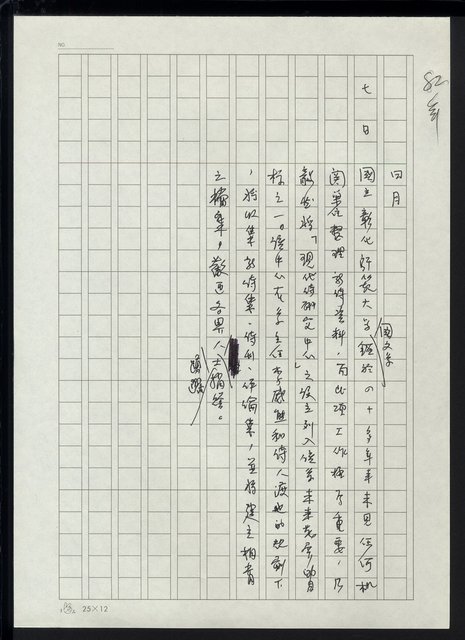 NO.
82年
四月
七日
國立彰化師範大學國文系鑑於四十多年來未見任何機
關単位整理新詩資料,而此項工作極為重要,乃
毅然將「現代詩研究中心」之設立列入該系未來發展的目
標之一。該中心在系主任李威熊和詩人渡也的規劃下
,將收集新詩集、詩刊、評論集,並將建立相當
之檔集,歡迎各界人士捐贈。
25×12